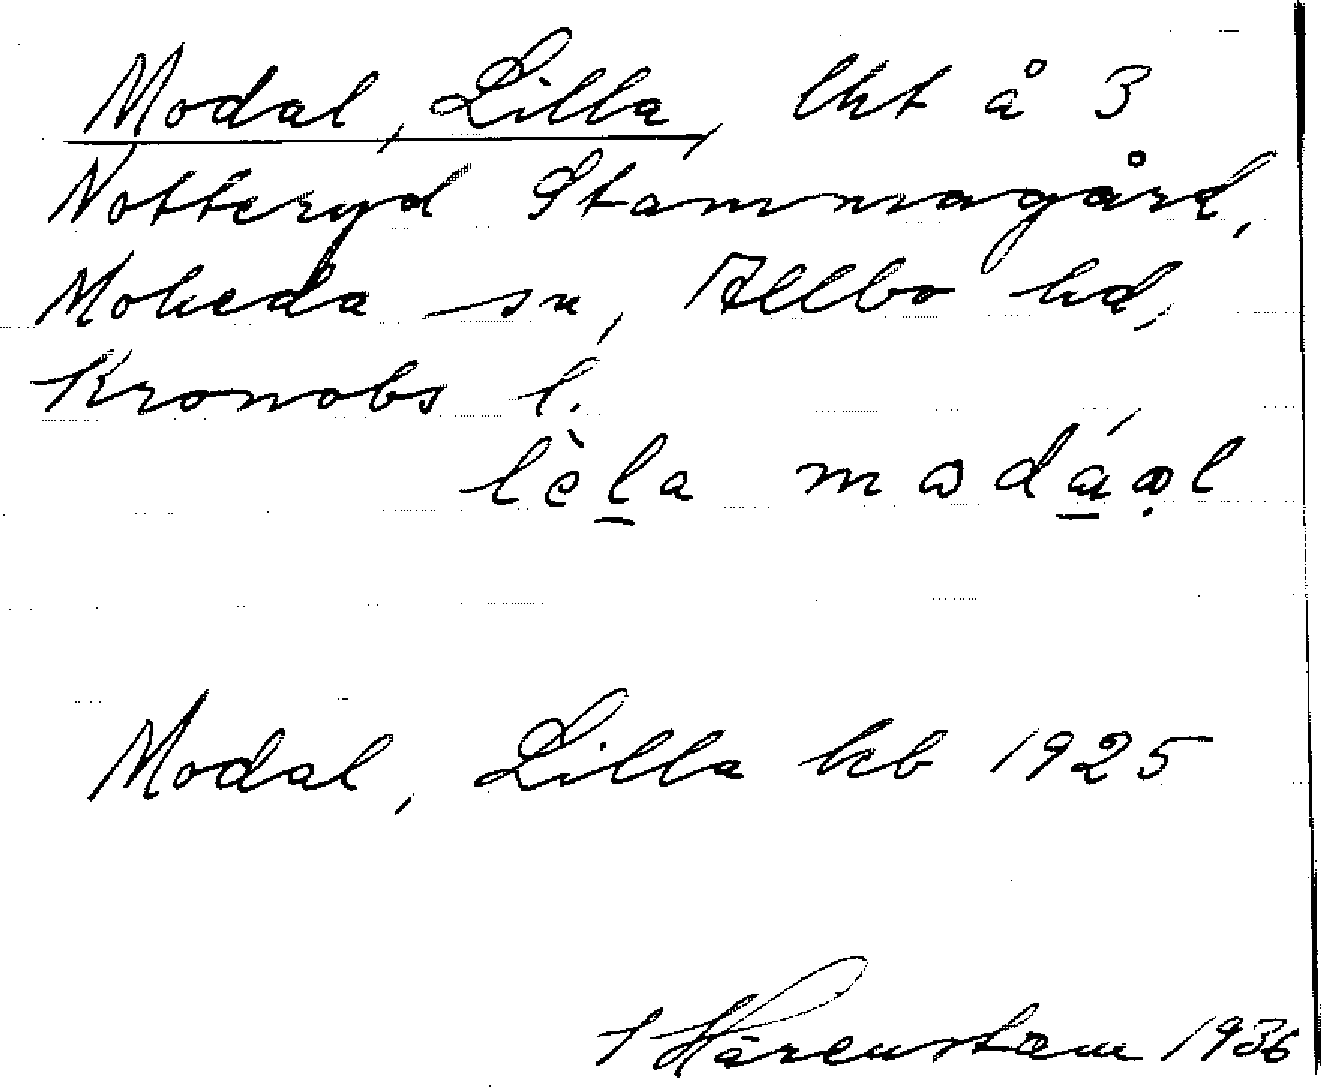 Modal, Lilla, lht å 3
Notteryd Stommagård,
Moheda sn, Allbo hd,
Kronobs l.
lèḻa mɷdá̱ꭤ̣l
Modal, Lilla kb 1925
Härenstam 1936